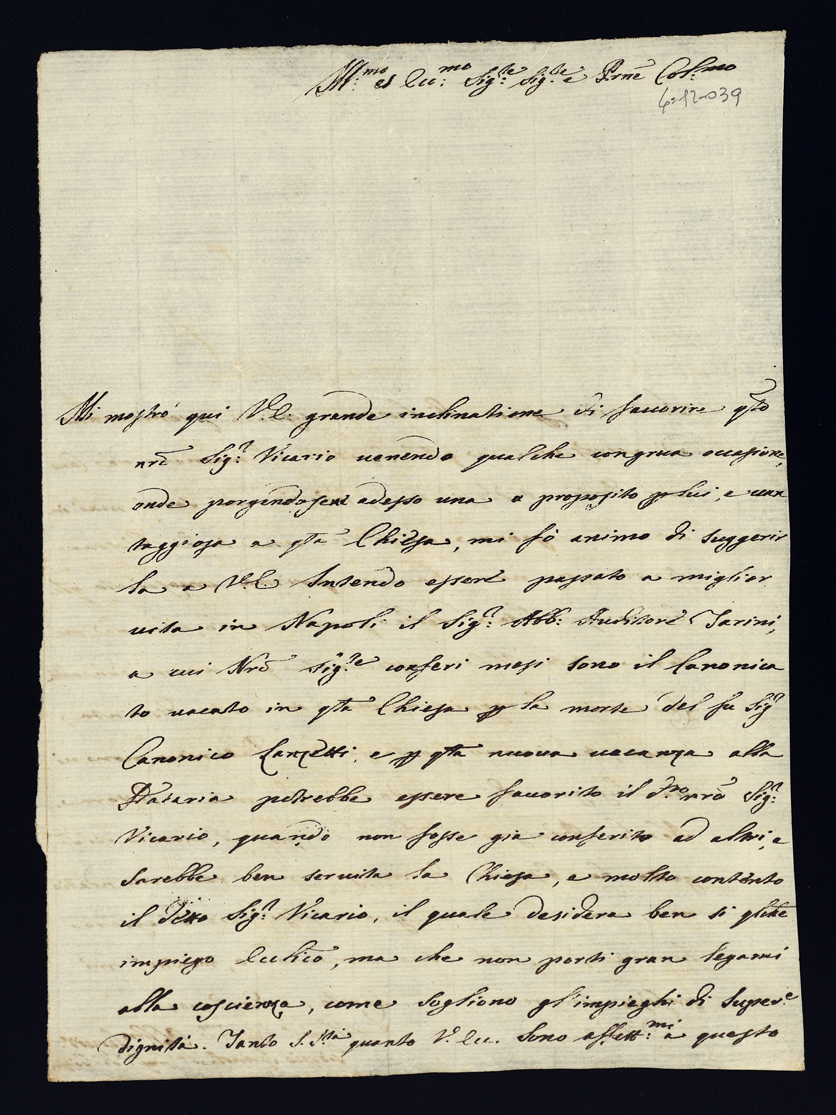 Ill:mo et Ecc:mo Sig:re Sig:re e Prñe Col:mo
6-12-039
Mi mostrò qui V.E. grande inclinatione di favorire q̃sto
nr̃o Sig:r Vicario venendo qualche congrua occasione,
onde porgendosene adesso una a proposito p̱ lui, e van
taggiosa a q̃ta Chiesa, mi fò animo di suggerir
la a V.E. Intendo essere passato a miglior
vita in Napoli il Sig:r Abb: Auditore Tarini,
a cui Nr̃o Sig:re conferì mesi sono il Canonica
to vacato in q̃ta Chiesa p̱ la morte del fù Sig:r
Canonico Lanzetti, e p̱ q̃ta nuova vacanza alla
Dataria potrebbe essere favorito il d:o nr̃o Sig:r
Vicario, quando non fosse già conferito ad altri, e
sarebbe ben servita la Chiesa, e molto contento
il detto Sig:r Vicario, il quale desidera ben sì q̃lche
impiego Eccl̃ico, ma che non porti gran legami
alla coscienza, come sogliono gl'impieghi di Super:e
dignità. Tanto S. S.tà quanto V. Ecc. sono affett:mi a questo